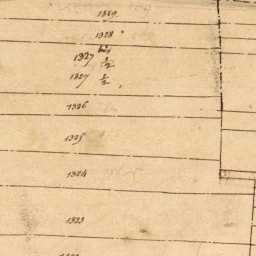 1329
1328
1327 bis 1/2
1327 1/2
1326
1325
1324
1323